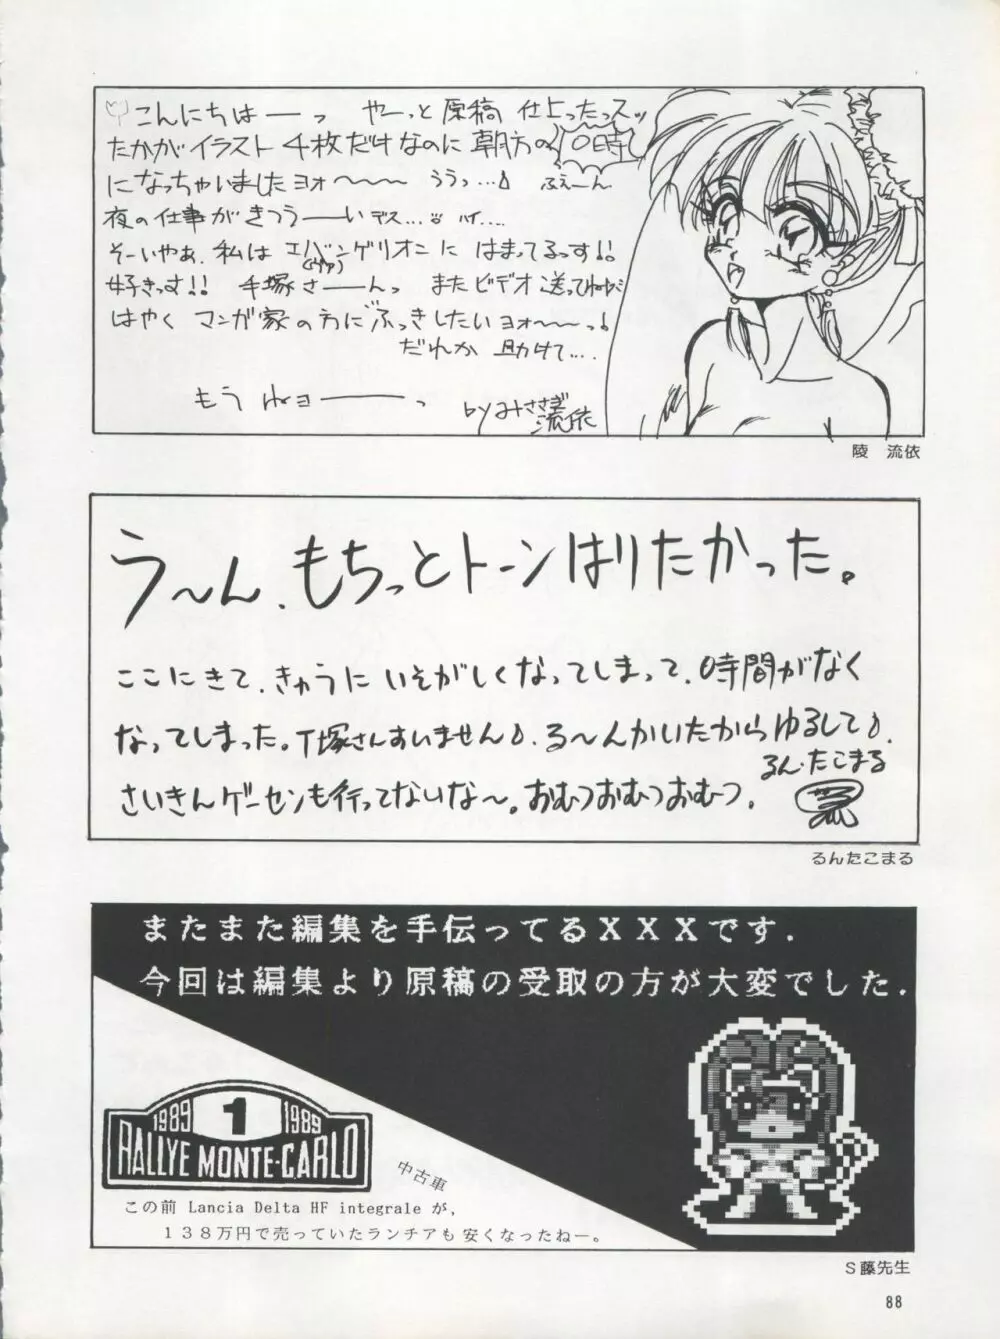 こんにちはーーっ やーっと原稿仕上ったっスッ
たかがイラスト4枚だけなのに朝方の10時
になっちゃいましたヨォ〜〜〜 ううっ…♪ ふぇーん
夜の仕事がきつうーーいデス… ハイ….
そーいやぁ、私はエバンゲリオンに はまってるっす!!
(ヴァ)
好きっす!! 手塚さーーんっ またビデオ送ってね
はやく マンガ家の方にふっきしたいヨォ〜〜っ!
だれか助けて….
もうねヨーーーっ
by みささぎ
流依
陵 流依
う〜ん、もちっとトーンはりたかった。
ここにきて、きゅうにいそがしくなってしまって、時間がなく
なってしまった。T塚さんすいません♪. る〜んかいたからゆるして♪.
るん・たこまる
さいきんゲーセンも行ってないな〜。おむつおむつおむつ.
るんたこまる
またまた編集を手伝ってるXXXです.
今回は編集より原稿の受取の方が大変でした.
1989 1 1989
RALLYE MONTE-CARLO
中古車
この前 Lancia Delta HF integrale が,
138万円で売っていたランチアも安くなったねー。
S藤先生
88